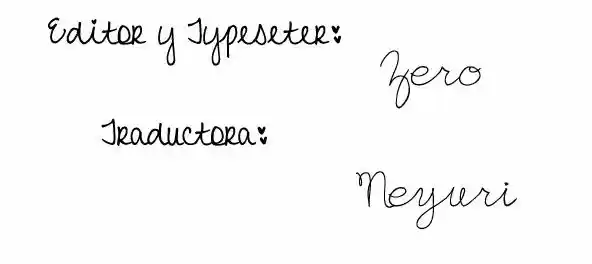 Editor y Typeseter:
Zero
Traductora:
Neyuri